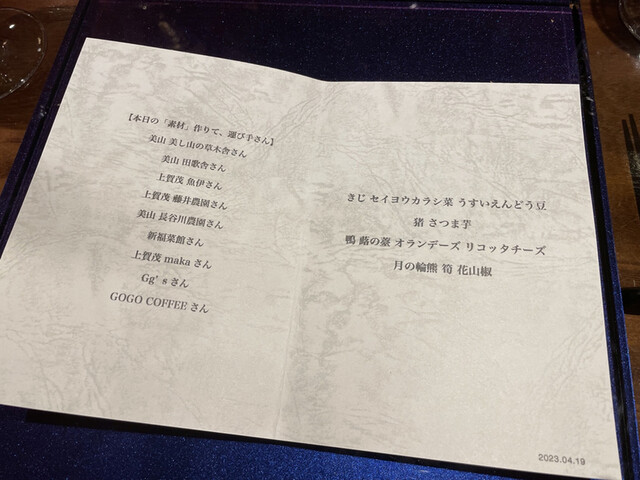 【本日の「素材」作りて、運び手さん】
美山 美し山の草木舎さん
美山 田歌舎さん
上賀茂 魚伊さん
上賀茂 藤井農園さん
美山 長谷川農園さん
新福菜館さん
上賀茂 maka さん
Gg’s さん
GOGO COFFEE さん
きじ セイヨウカラシ菜 うすいえんどう豆
猪 さつま芋
鴨 蕗の薹 オランデーズ リコッタチーズ
月の輪熊 筍 花山椒
2023.04.19